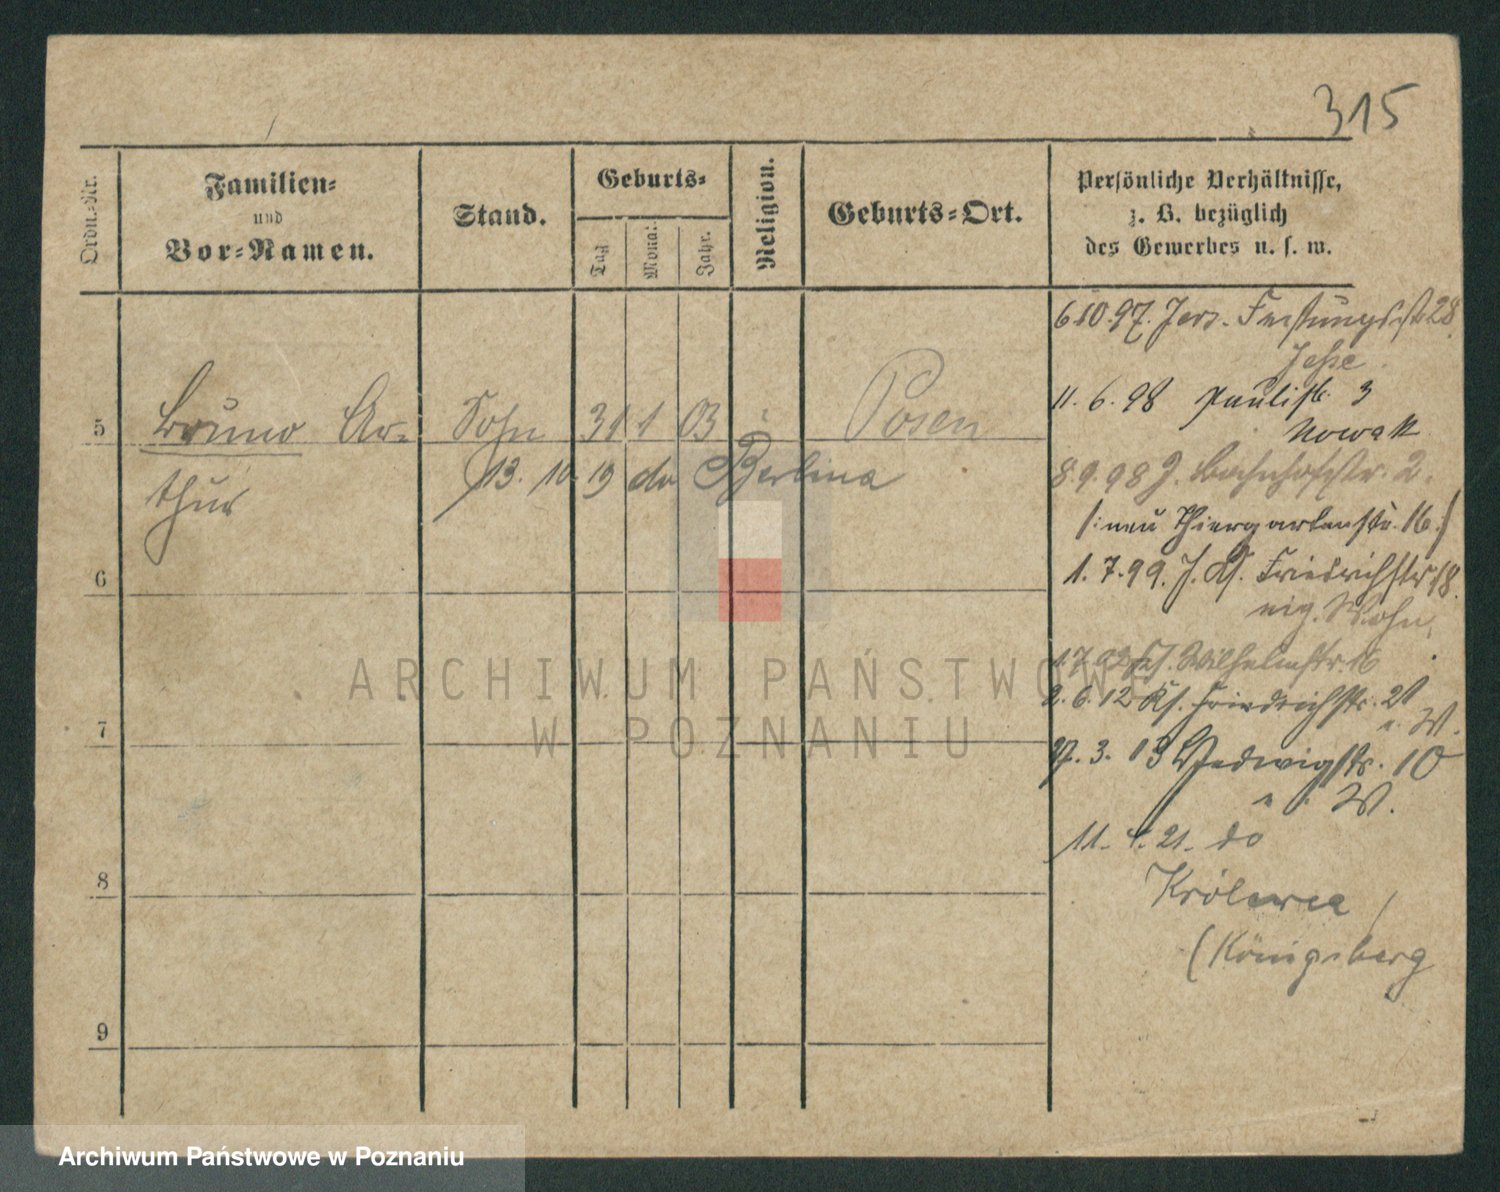 315
Ordn.-Nr.
Familien-
und
Vor-Namen.
Stand.
Geburts-
Tag
Monat
Jahr.
Religion.
Geburts-Ort.
Persönliche Verhältnisse,
z. B. bezüglich
des Gewerbes u. s. w.
5
Bruno Ar-
thur
Sohn
31 1 03
Posen
13. 10. 19 do Berlina
6
7
8
9
6.10.97. Jers. Festungsstr 28
Jeske
11. 6. 98 Paulistr. 3
Nowak
8.9.98 J. Bahnhofstr. 2.
/: neu Thiergartenstr. 16 :/
1. 7. 99. J. Ks. Friedrichstr 18.
eig. Wohn.
1.7.02 Ks. Wilhelmstr. 16
2. 6. 12 Ks. Friedrichstr. 21
e. W.
27. 3. 13 Hedwigstr. 10
e. W.
11. 4. 21. do
Królewca /
(Königsberg
ARCHIWUM PAŃSTWOWE
W POZNANIU
Archiwum Państwowe w Poznaniu